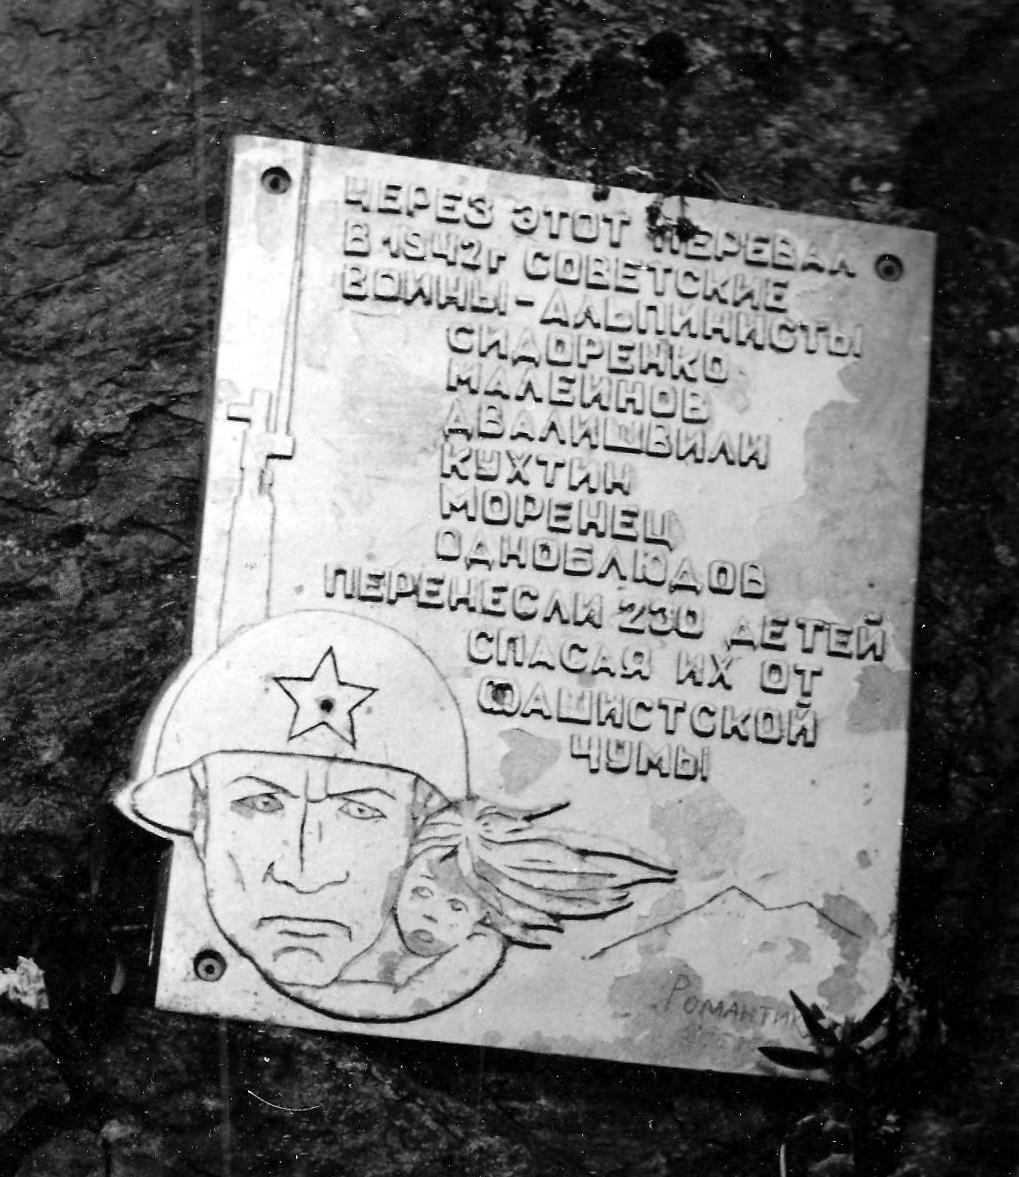 ЧЕРЕЗ ЭТОТ ПЕРЕВАЛ
В 1942г СОВЕТСКИЕ
ВОИНЫ-АЛЬПИНИСТЫ
СИДОРЕНКО
МАЛЕИНОВ
ДВАЛИШВИЛИ
КУХТИН
МОРЕНЕЦ
ОДНОБЛЮДОВ
ПЕРЕНЕСЛИ 230 ДЕТЕЙ
СПАСАЯ ИХ ОТ
ФАШИСТСКОЙ
ЧУМЫ